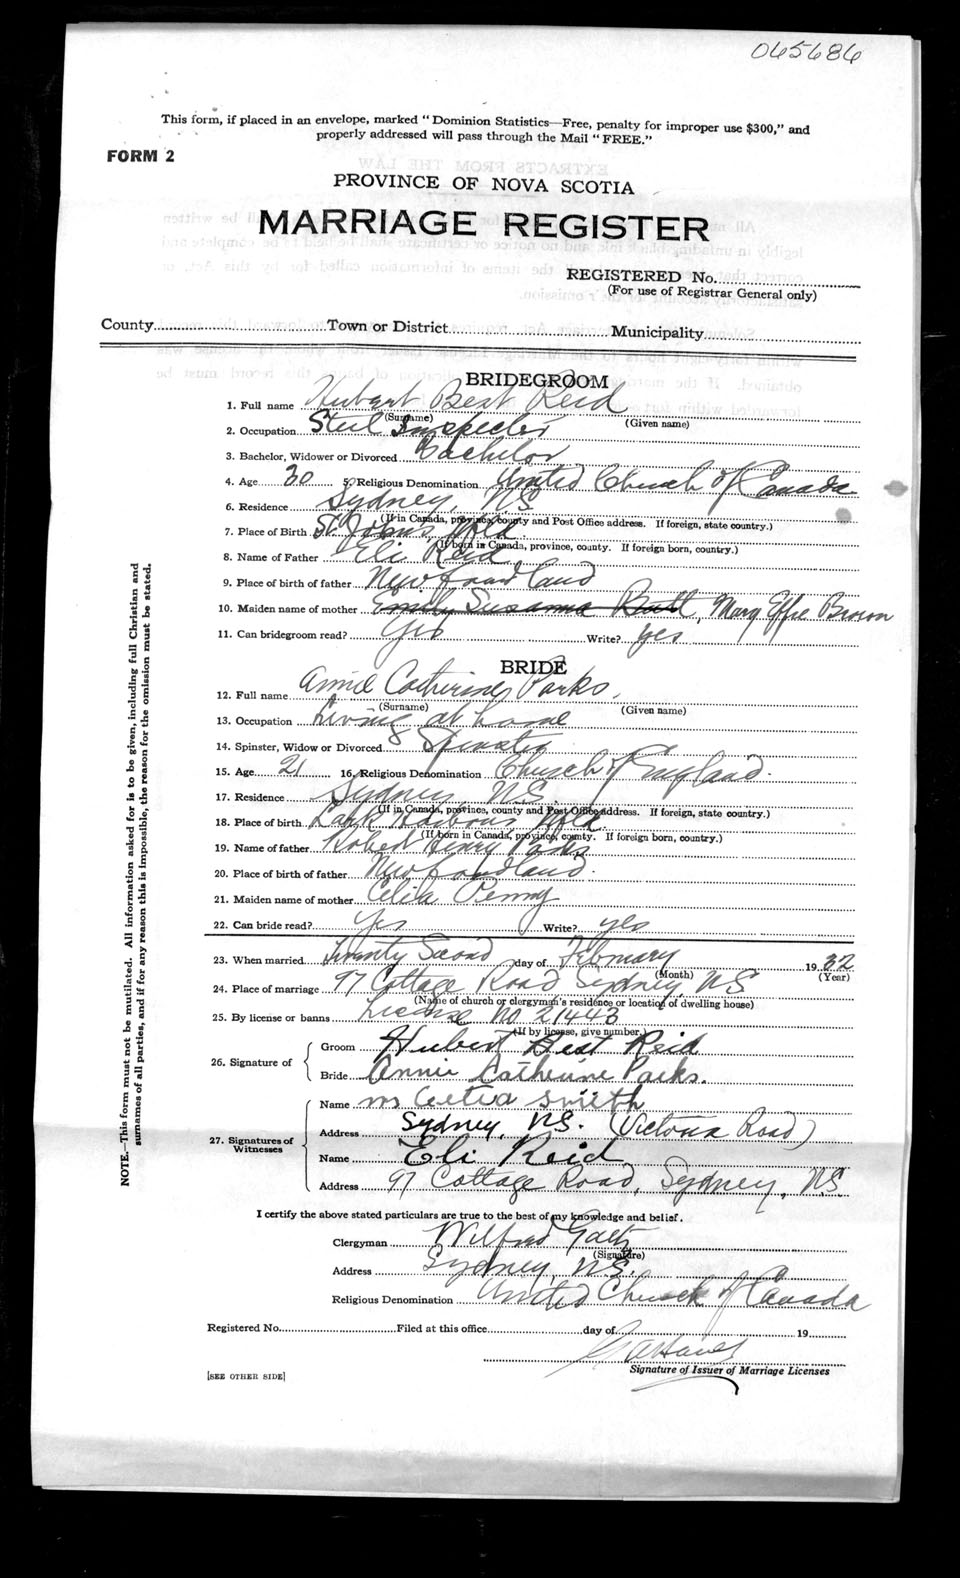 065686
This form, if placed in an envelope, marked "Dominion Statistics—Free, penalty for improper use $300," and
properly addressed will pass through the Mail "FREE."
FORM 2
PROVINCE OF NOVA SCOTIA
MARRIAGE REGISTER
REGISTERED No.
(For use of Registrar General only)
County Town or District Municipality
BRIDEGROOM
1. Full name Hubert Best Reid
(Surname) (Given name)
2. Occupation Steel Inspector
3. Bachelor, Widower or Divorced Bachelor
4. Age 30 5. Religious Denomination United Church of Canada
6. Residence Sydney, NS
(If in Canada, province, county and Post Office address. If foreign, state country.)
7. Place of Birth St. John's, Nfld.
(If born in Canada, province, county. If foreign born, country.)
8. Name of Father Eli Reid
9. Place of birth of father Newfoundland
10. Maiden name of mother Emily Susanna Butt, Mary Effie Brown
11. Can bridegroom read? Yes Write? yes
BRIDE
12. Full name Annie Catherine Parks,
(Surname) (Given name)
13. Occupation Living at home
14. Spinster, Widow or Divorced Spinster
15. Age 21 16. Religious Denomination Church of England.
17. Residence Sydney NS.
(If in Canada, province, county and Post Office address. If foreign, state country.)
18. Place of birth Lark Harbour, Nfld.
(If born in Canada, province, county. If foreign born, country.)
19. Name of father Robert Henry Parks
20. Place of birth of father Newfoundland.
21. Maiden name of mother Celia Penny
22. Can bride read? Yes Write? yes
23. When married Twenty Second day of February 1932
(Month) (Year)
24. Place of marriage 97 Cottage Road Sydney, NS
(Name of church or clergyman's residence or location of dwelling house)
25. By license or banns License No 21443
(If by license, give number.)
26. Signature of
Groom Hubert Best Reid
Bride Annie Catherine Parks.
27. Signatures of Witnesses
Name Smith
Address Sydney, NS. (Victoria Road)
Name Eli Reid
Address 97 Cottage Road, Sydney, NS
I certify the above stated particulars are true to the best of my knowledge and belief.
Clergyman Wilfred Gaetz
(Signature)
Address Sydney, NS.
Religious Denomination United Church of Canada
Registered No. Filed at this office day of 19
Signature of Issuer of Marriage Licenses
[SEE OTHER SIDE]
NOTE.—This form must not be mutilated. All information asked for is to be given, including full Christian and
surnames of all parties, and if for any reason this is impossible, the reason for the omission must be stated.